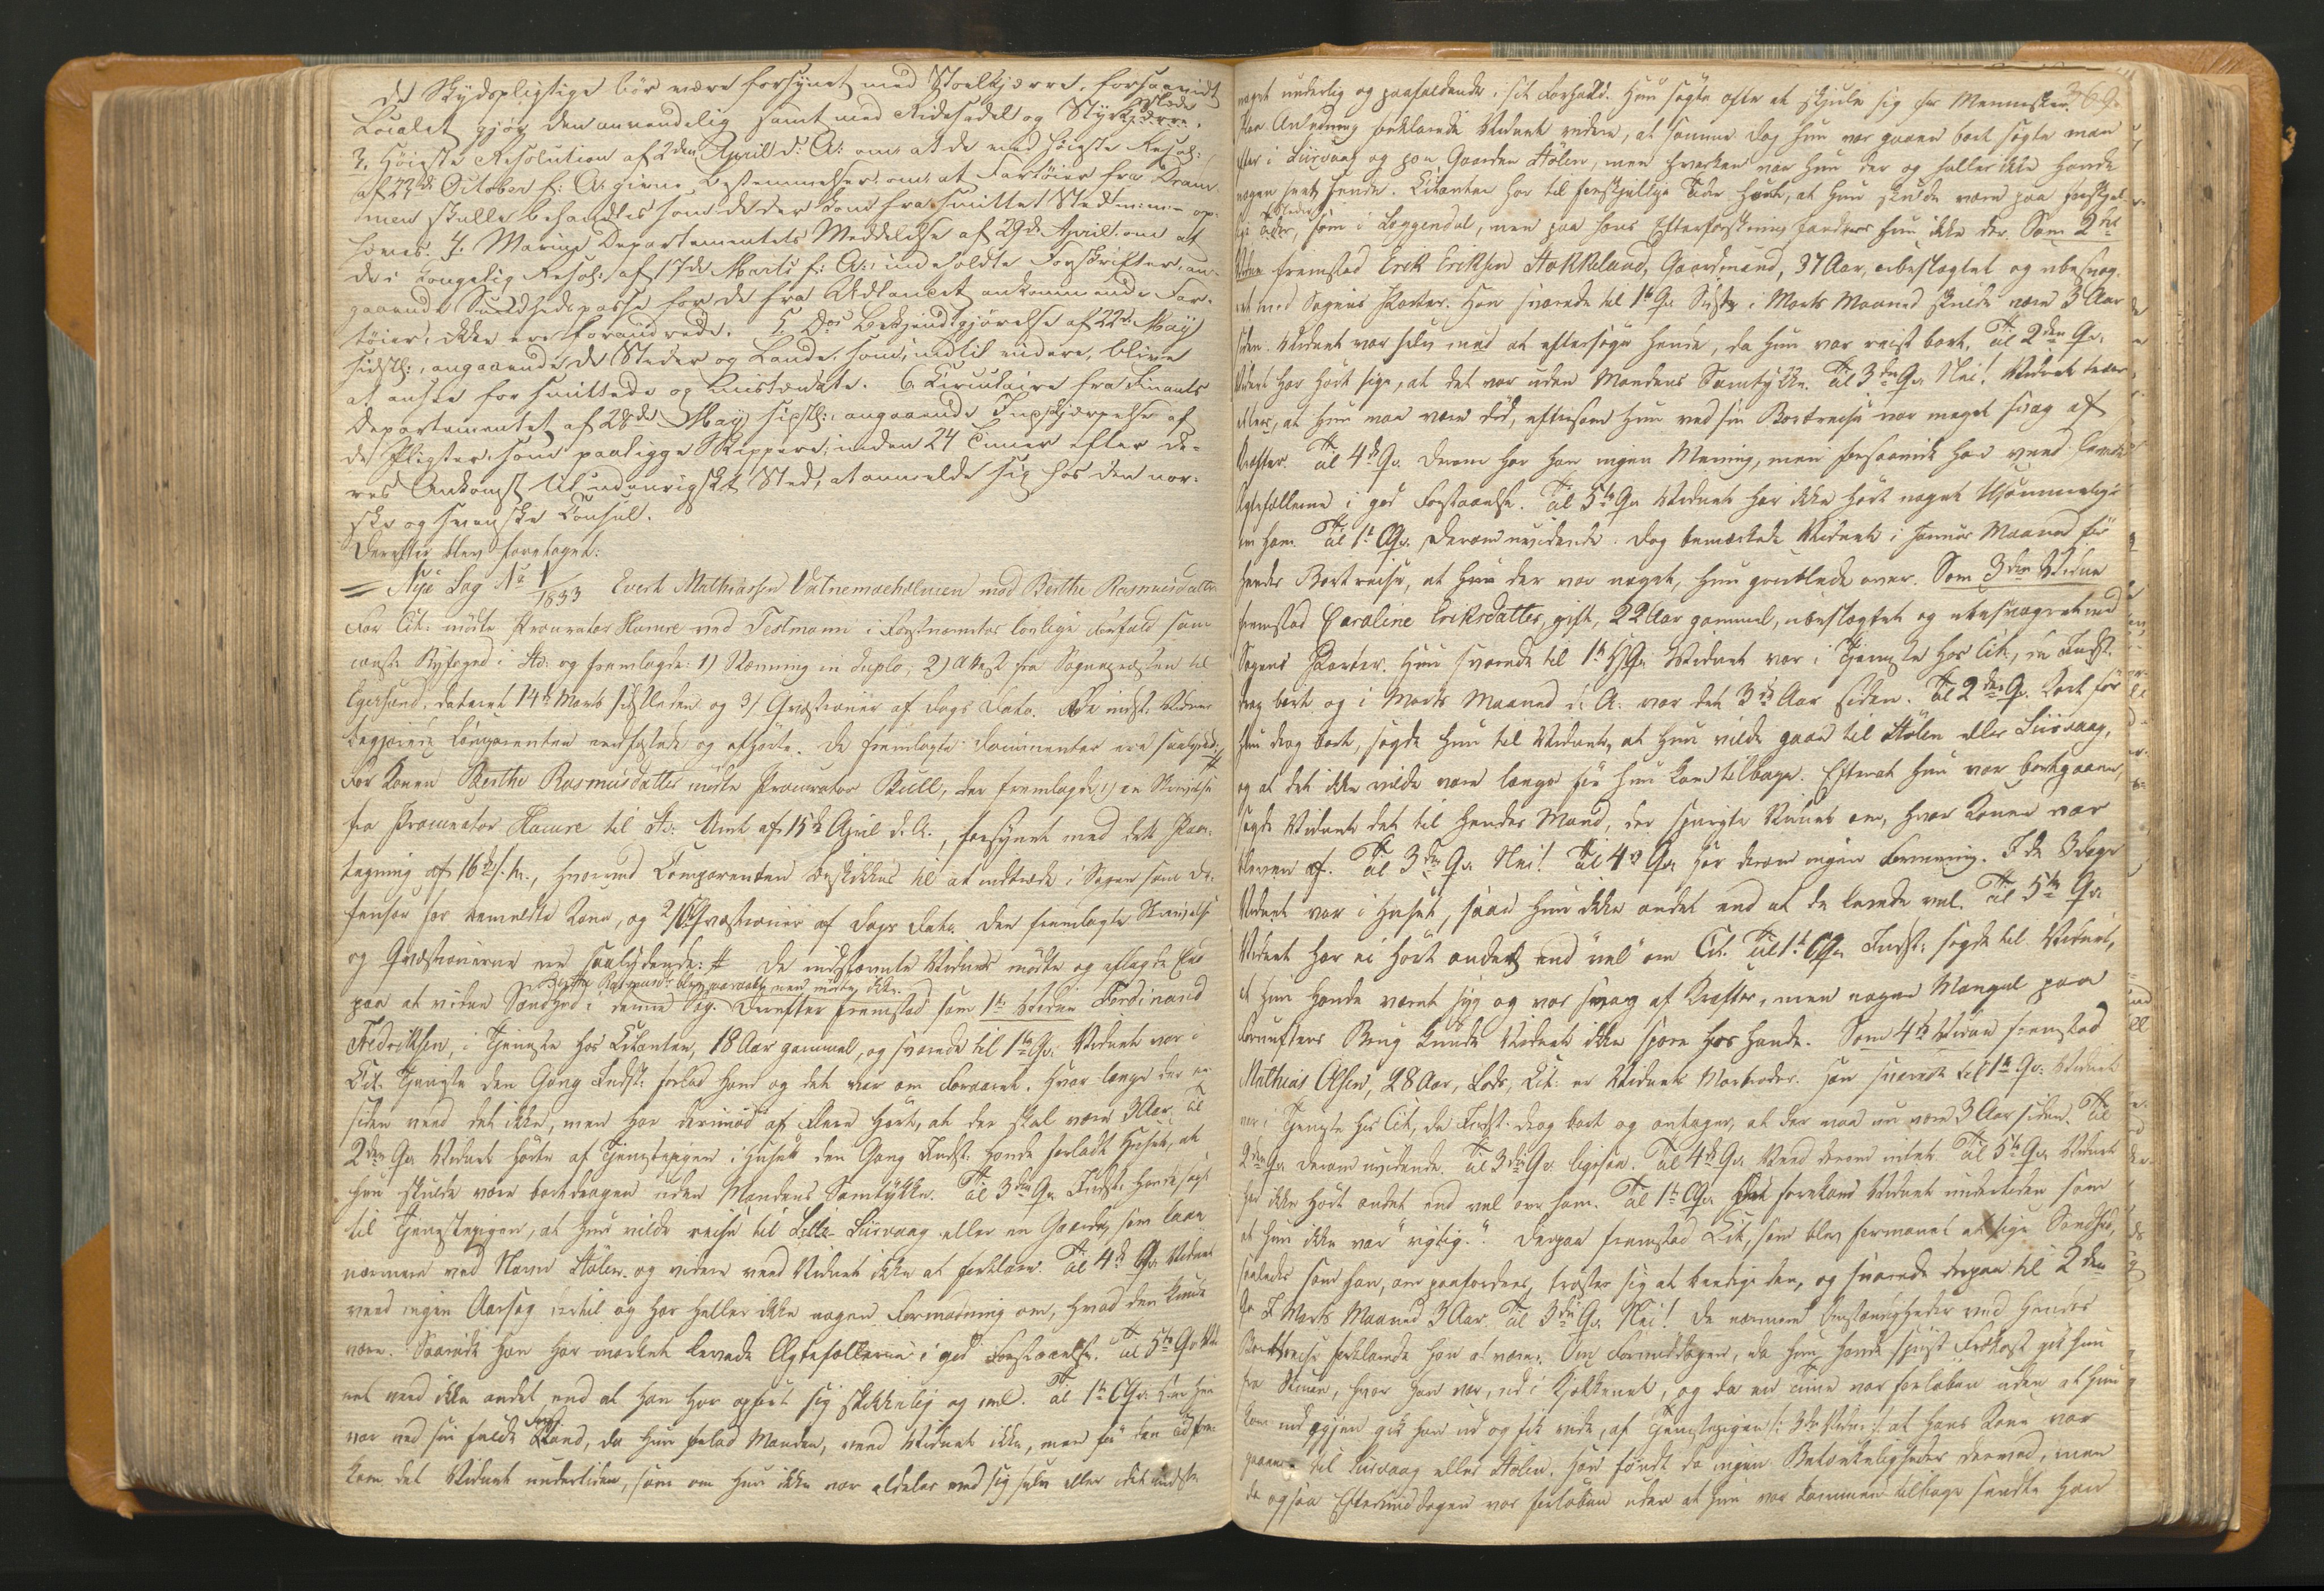 de Skydspligtige bør være forsynet med Stoelkjærre, forsaavidt
Localet gjør den anvendelig samt med Ridesadel og Stykjærre.
3, Høieste Resolution af 2den April d: A: om at de ved høieste Resol:
af 23de October f: A: givne Bestemmelser om at Fartøier fra Dram-
men skulle behandles som de der kom fra smittet Sted
hæves. 4, Marine Departementets Meddelelse af 29de April: om at
de i kongelig Resol: af 17de Marts f: A: indeholdte Forskrifter, an-
gaaende Sundhedspasse for de fra Udlandet ankommende Far-
tøier, ikke ere forandrede. 5 Do Bekjendtgjørelse af 22de May
sidstl:, angaaende de Steder og Lande, som, indtil videre, blive
at ansee for smittede og mistænkte. 6 Circulaire fra Finants
Departementet af 28de May sidstl:, angaaende Indskjærpelse af
de Pligter, som paaligge Skippere, inden 24 Timer efter de-
res Ankomst til udenrigskt Sted, at anmelde sig hos den nor-
ske og svenske Consul.
Derefter blev foretaget:
Nye Sag No 1/1833 Evert Mathiassen Vatnemoeholmen mod Berthe Rasmusdatter
For Cit: mødte Procurator Hauure ved Testmann i Førstnævntes lovlige Forfald som
const: Byfoged i St: og fremlagde: 1) Stævning in duplo; 2) Attest fra Sognepræsten til
Egersund, dateret 14de Marts sidstleden og 3) Qvæstioner af Dags Dato. De indst: Vidner
begjærede Comparenten eedfæstede og afhørte. De fremlagte Documenter ere saalyd:
For Konen Berthe Rasmusdatter mødte Procurator Bull, der fremlagde 1) en Skrivelse
fra Procurator Hauure til St: Amt af 15de April d. A., forsynet med dets Paa-
tegning af 16de s. M., hvorved Comparenten beskikkes til at indtræde i Sagen som De-
fensor for anmeldte Kone, og 2) Qvæstioner af Dags Dato. Den fremlagte Skrivelse
og Qvæstionerne ere saalydende: # De indstævnte Vidner mødte og aflagde Eed
Berthe Rasmusd: blev paaraabt men mødte ikke.
paa at vidne Sandhed i denne Sag. Derefter fremstod som 1te Vidne Ferdinand
Fredriksen, i Tjeneste hos Citanten, 18 Aar gammel, og svarede til 1te Qv: Vidnet var i
Cit: Tjeneste den Gang Indst: forlod ham og det var om Foraaret. Hvor længe der er
siden veed det ikke, men har derimod af Flere hørt, at der skal være 3 Aar. Til
2den Qv: Vidnet hørte af Tjenestepigen i Huset den Gang Indst: havde forladt Huset, at
hun skulde være bortdragen uden Mandens Samtykke. Til 3die Qv: Indst: havde sagt
til Tjenestepigen, at hun vilde reise til Lille-Siirvaag eller en Gaard, som laae
nærmere ved Navn Stølen og videre veed Vidnet ikke at forklare. Til 4de Qv: Vidnet
veed ingen Aarsag dertil og har heller ikke nogen Formodning om, hvad den kunde
være. Saavidt han har mærket levede Ægtefællerne i god Forstaaelse. Til 5te Qv: Vid-
net veed ikke andet end at han har opført sig skikkelig og vel. Til 1te CQv: Om hun
var ved sin fulde Forstand, da hun forlod Manden, veed Vidnet ikke, men før den Tid fore-
kom det Vidnet undertiden, som om hun ikke var aldeles ved sig selv eller det mindste
369.
noget underlig og paafaldende i sit Forhold. Hun søgte ofte at skjule sig for Mennesker.
Paa Anledning forklarede Vidnet videre, at samme Dag hun var gaaen bort søgte man
efter i Siirvaag og paa Gaarden Stølen, men hverken var hun der og heller ikke havde
nogen seet hende. Citanten har til forskjellige Tider hørt, at hun skulde være paa forskjel-
lige Steder, som i Leggendal, men paa hans Efterforskning fandtes hun ikke der. Som 2det
Vidne fremstod Erik Eriksen Stokkeland, Gaardmand, 37 Aar, ubeslægtet og ubesvog-
ret med Sagens Parter. Han svarede til 1te Qv: Sidste i Marts Maaned skulde være 3 Aar
siden. Vidnet var selv med at eftersøge hende, da hun var reist bort. Til 2den Qv:
Vidnet har hørt sige, at det var uden Mandens Samtykke. Til 3die Qv: Nei! Vidnet troer
ellers, at hun maa være død, eftersom hun ved sin Bortreise var meget svag af
Kræfter. Til 4de Qv: Derom har han ingen Mening, men forsaavidt han veed levede
Ægtefællerne i god Forstaaelse. Til 5te Qv: Vidnet har ikke hørt noget Usømmeligt
om ham. Til 1te CQv: Derom uvidende. Dog bemærkede Vidnet i Januar Maaned før
hendes Bortreise, at hun der var noget, hun grublede over. Som 3die Vidne
fremstod Caroline Eriksdatter, gift, 22 Aar gammel, ubeslægtet og ubesvogret med
Sagens Parter. Hun svarede til 1te HQv: Vidnet var i Tjeneste hos Cit:, da Indst:
drog bort og i Marts Maaned d: A: var det 3de Aar siden. Til 2den Qv: Kort før
hun drog bort, sagde hun til Vidnet, at hun vilde gaae til Stølen eller Siirvaag,
og at det ikke vilde vare længe før hun kom tilbage. Efterat hun var bortgaaen,
sagde Vidnet det til hendes Mand, der spurgte Vidnet om, hvor Konen var
bleven af. Til 3die Qv: Nei! Til 4de Qv: Har derom ingen Formening. I de 3 Dage
Vidnet var i Huset, saae hun ikke andet end at de levede vel. Til 5te Qv:
Vidnet har ei hørt andet end "vel" om Cit: Til 1te CQv: Indst: sagde til Vidnet,
at hun havde været syg og var svag af Kræfter, men nogen Mangel paa
Fornuftens Brug kunde Vidnet ikke spore hos hende. Som 4de Vidne fremstod
Mathias Olsen, 28 Aar, Lods, Cit: er Vidnets Morbroder. Han svarede til 1te Qv: Vidnet
var i Tjeneste hos Cit:, da Indst: drog bort og antager, at der maa nu være 3 Aar siden. Til
2den Qv: Derom uvidende. Til 3die Qv: ligesaa. Til 4de Qv: Veed derom intet. Til 5te Qv: Vidnet
har ikke hørt andet end vel om ham. Til 1te CQv: Det forekom Vidnet undertiden som
at hun ikke var "rigtig". Derpaa fremstod Cit:, som blev formanet at sige Sandhed,
saaledes som han, om paafordres, trøster sig at beedige den, og svarede derpaa til 2den
Qv: I Marts Maaned 3 Aar. Til 3die Qv: Nei! De nærmere Omstændigheder ved hendes
Bortreise forklarede han at være: Om Formiddagen, da hun havde spiist Frokost gik hun
fra Stuen, hvor han var, ud i Kjøkkenet, og da en Time var forløben uden at hun
kom ind igjen gik han ud og fik vide, af Tjenestepigen /: 3die Vidne :/ at hans Kone var
gaaen til Siirvaag eller Stølen. Han fandt da ingen Betænkeligheder derved, men
da ogsaa Eftermiddagen var forløben uden at hun var kommen tilbage sendte han